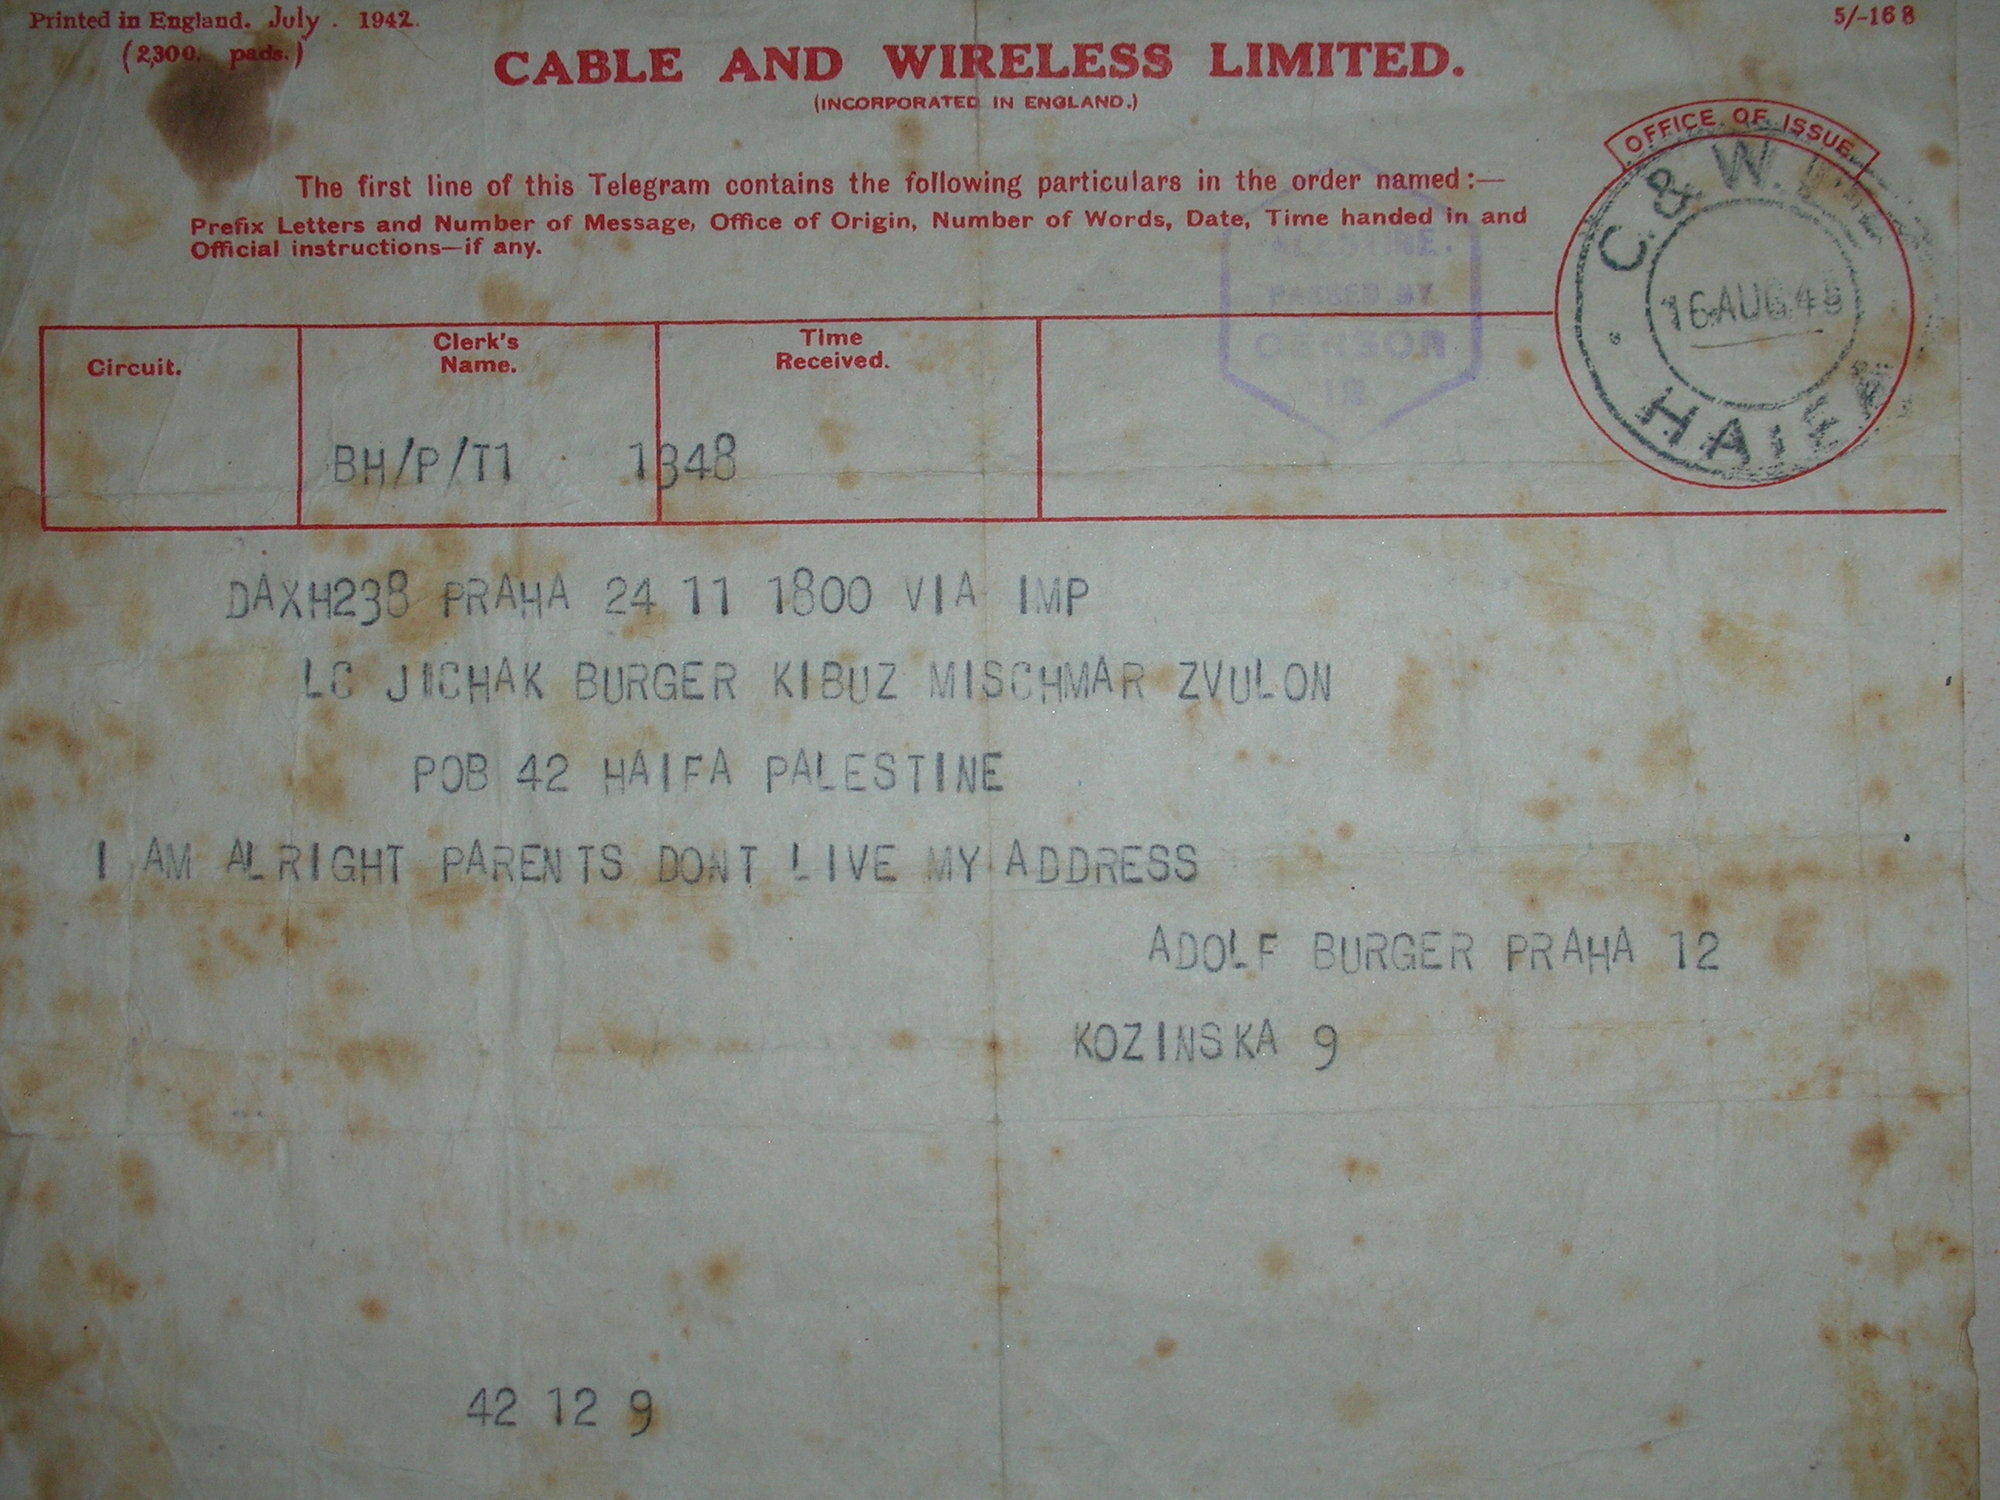 Printed in England. July . 1942.
(2,300. pads.)
5/-168
CABLE AND WIRELESS LIMITED.
(INCORPORATED IN ENGLAND.)
OFFICE OF ISSUE
The first line of this Telegram contains the following particulars in the order named:—
Prefix Letters and Number of Message, Office of Origin, Number of Words, Date, Time handed in and
Official instructions—if any.
C. & W.
16 AUG 45
HAIFA
PALESTINE.
PASSED BY
CENSOR
Circuit.
Clerk's
Name.
Time
Received.
BH/P/T1 1348
DAXH238 PRAHA 24 11 1800 VIA IMP
LC JICHAK BURGER KIBUZ MISCHMAR ZVULON
POB 42 HAIFA PALESTINE
I AM ALRIGHT PARENTS DONT LIVE MY ADDRESS
ADOLF BURGER PRAHA 12
KOZINSKA 9
42 12 9